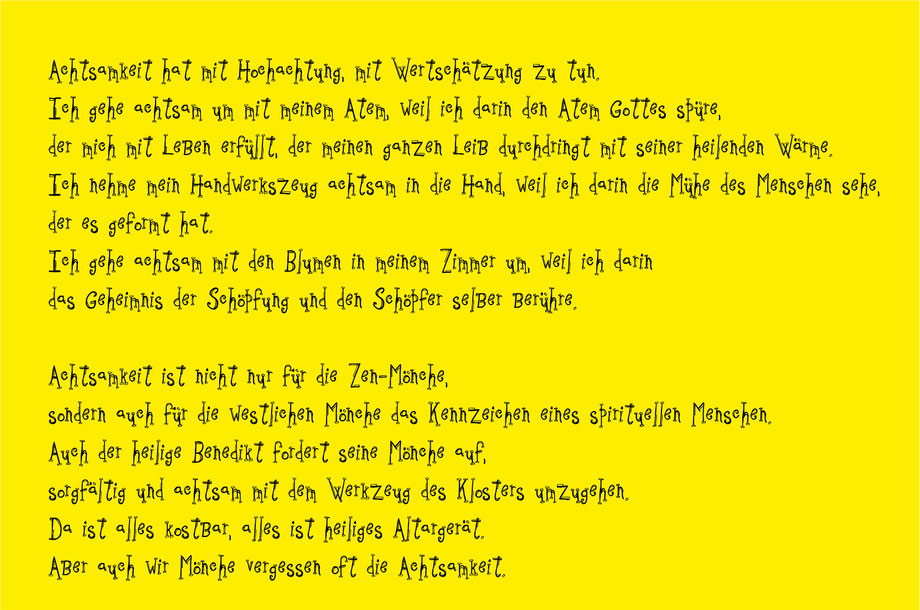 Achtsamkeit hat mit Hochachtung, mit Wertschätzung zu tun.
Ich gehe achtsam um mit meinem Atem, weil ich darin den Atem Gottes spüre,
der mich mit Leben erfüllt, der meinen ganzen Leib durchdringt mit seiner heilenden Wärme.
Ich nehme mein Handwerkszeug achtsam in die Hand, weil ich darin die Mühe des Menschen sehe,
der es geformt hat.
Ich gehe achtsam mit den Blumen in meinem Zimmer um, weil ich darin
das Geheimnis der Schöpfung und den Schöpfer selber berühre.
Achtsamkeit ist nicht nur für die Zen-Mönche,
sondern auch für die westlichen Mönche das Kennzeichen eines spirituellen Menschen.
Auch der heilige Benedikt fordert seine Mönche auf,
sorgfältig und achtsam mit dem Werkzeug des Klosters umzugehen.
Da ist alles kostbar, alles ist heiliges Altargerät.
Aber auch wir Mönche vergessen oft die Achtsamkeit.